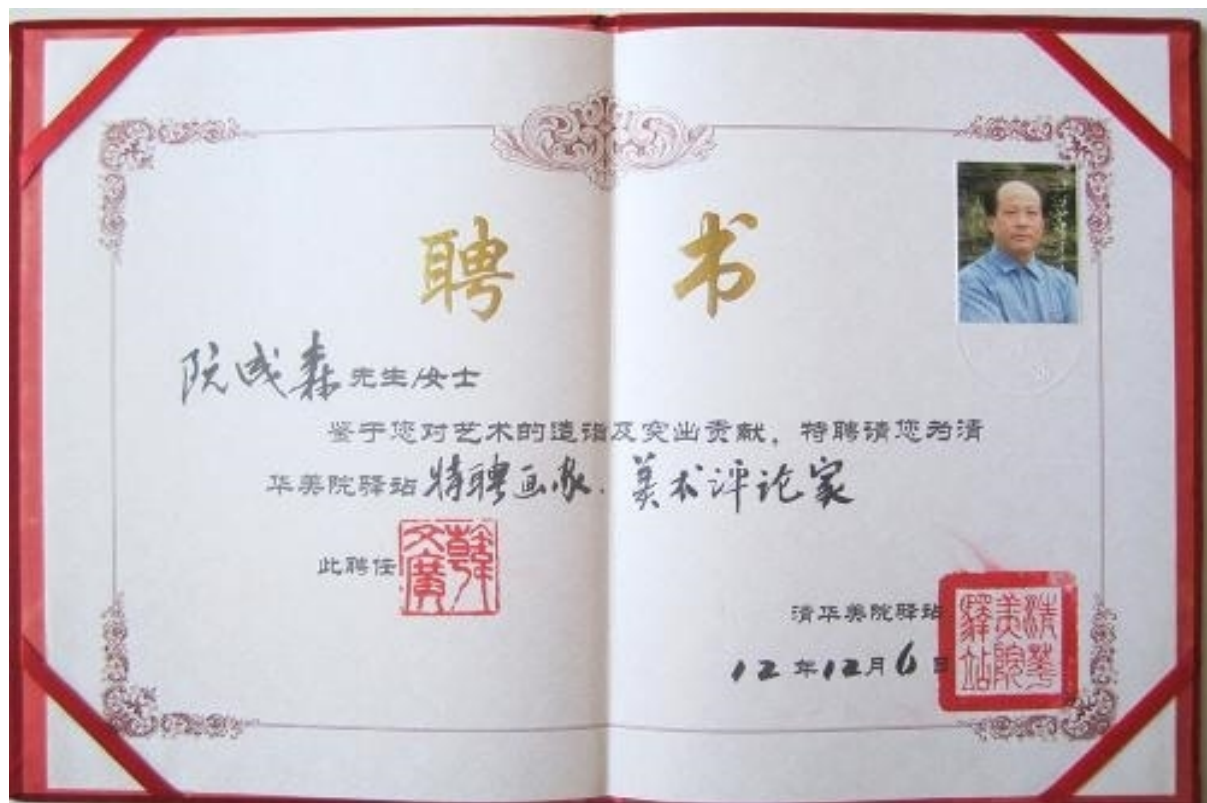 聘 书
阮成森先生/女士
鉴于您对艺术的造诣及突出贡献，特聘请您为清
华美院驿站特聘画家、美术评论家
此聘任
韓文廣
清华美院驿站
清華美院驛站
12年12月6日